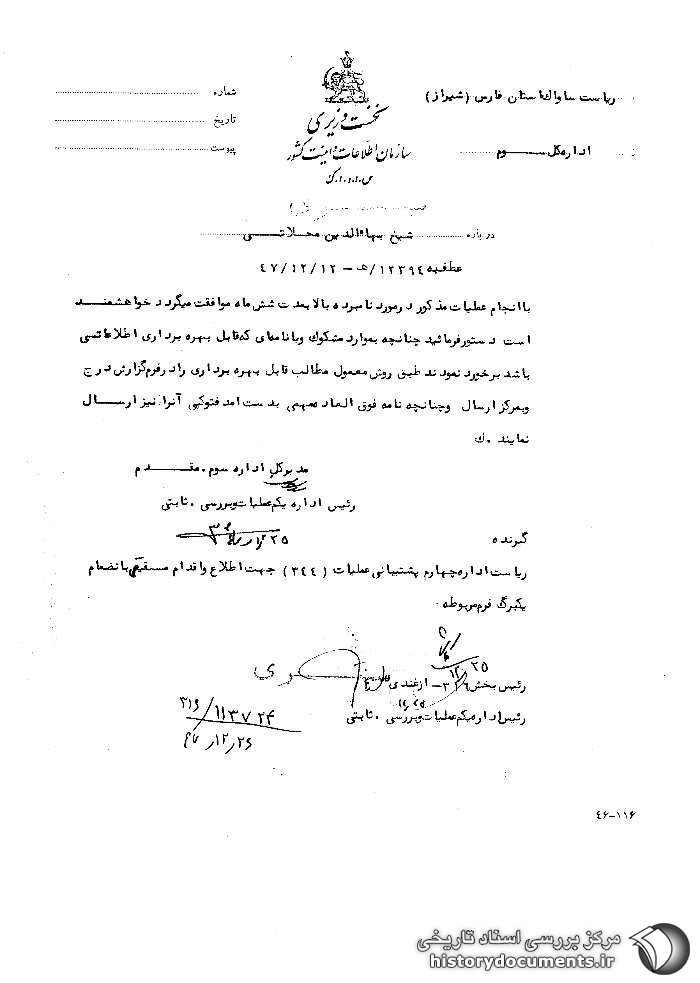 ریاست ساواک استان فارس (شیراز)
اداره کل سوم
نخست وزیری
سازمان اطلاعات و امنیت کشور
س.ا.و.ا.ک
شماره
تاریخ
پیوست
درباره شیخ بهاءالدین محلاتی
عطف به ۱۲۳۹۴/هـ - ۴۷/۱۲/۱۲
با انجام عملیات مذکور در مورد نامبرده بالا بمدت شش ماه موافقت میگردد خواهشمند
است دستور فرمائید چنانچه بموارد مشکوک و یا نامه‌ای که قابل بهره برداری اطلاعاتی
باشد برخورد نمودند طبق روش معمول مطالب قابل بهره برداری را در فرم گزارش درج
و بمرکز ارسال و چنانچه نامه فوق العاده مهمی بدست آمد فتوکپی آنرا نیز ارسال
نمایند . ک
مدیر کل اداره سوم . مقدم
رئیس اداره یکم عملیات و بررسی . ثابتی
گیرنده
ریاست اداره چهارم پشتیبانی عملیات (۳۴۴) جهت اطلاع و اقدام مستقیم بانضمام
یکبرگ فرم مربوطه .
رئیس بخش ۳۱۶ - ازغندی
رئیس اداره یکم عملیات و بررسی . ثابتی
۳۱۶/۱۱۳۷۲۴
۱۲,۲۶
۴۶-۱۱۶
مرکز بررسی اسناد تاریخی
historydocuments.ir